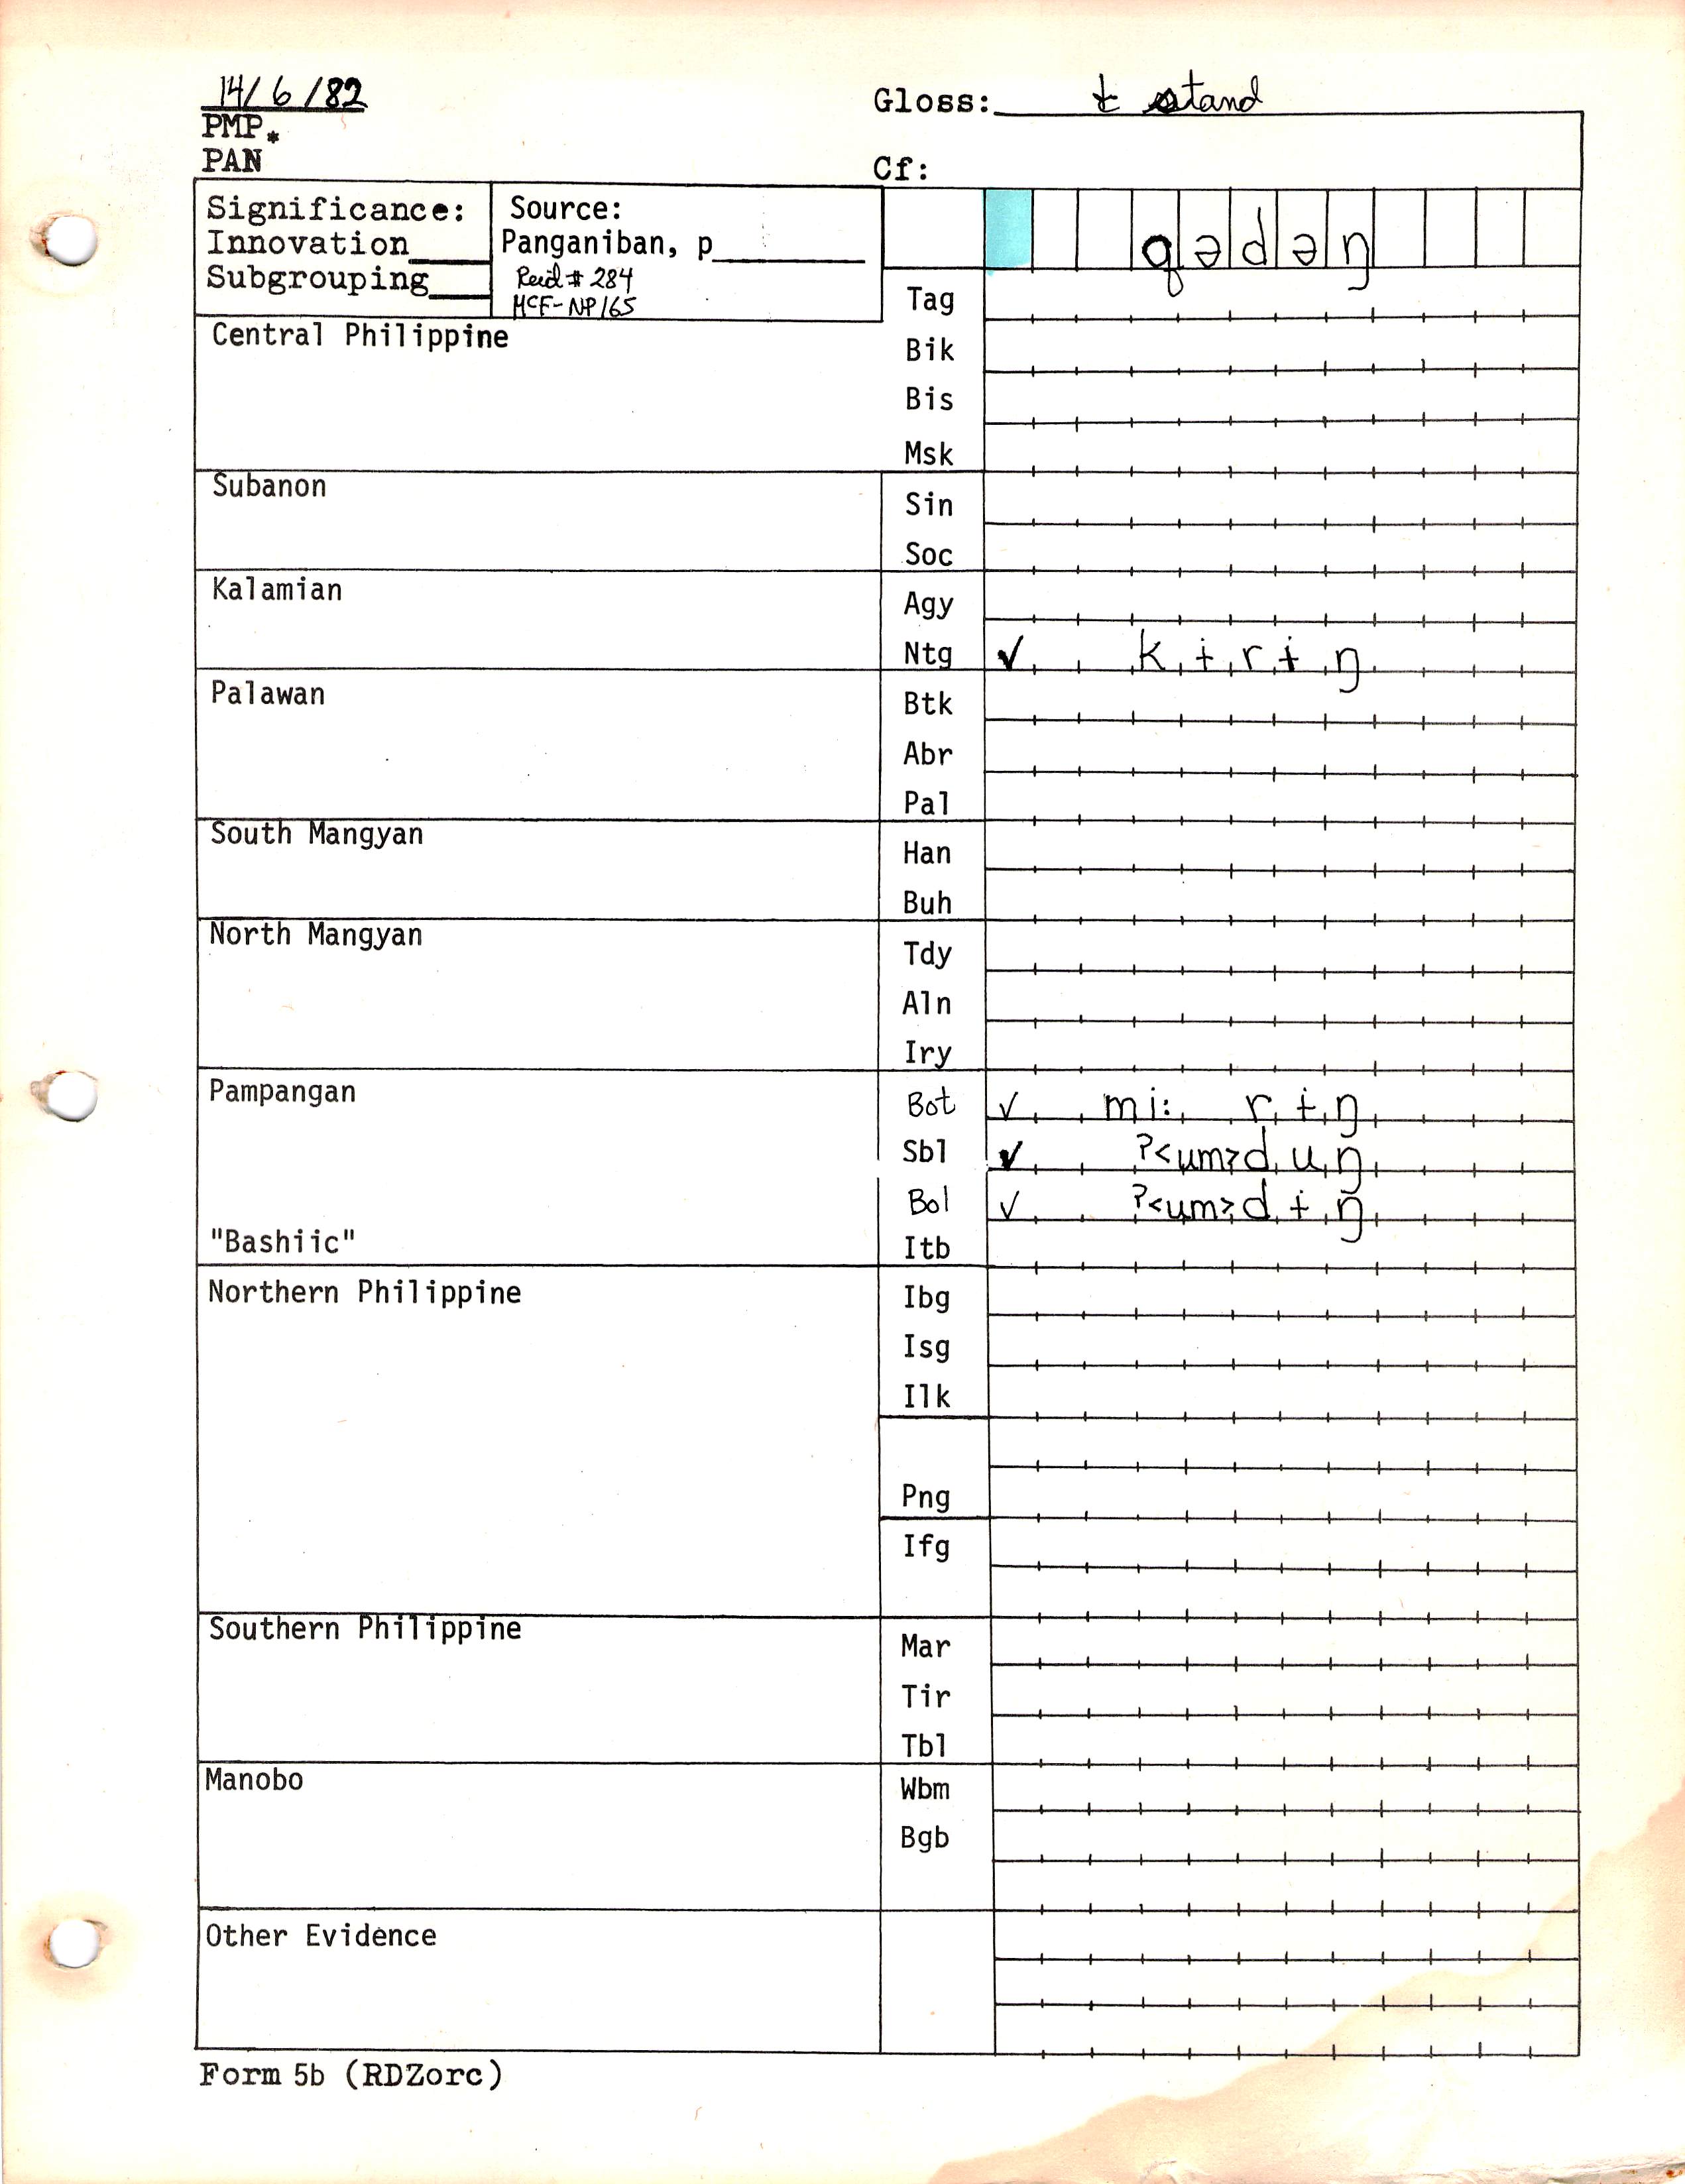 14/6/82
Gloss: t stand
PMP*
PAN
Cf:
Significance:
Innovation____
Subgrouping____
Source:
Panganiban, p________
Reid # 284
McF-NP165
qədəŋ
Tag
Central Philippine
Bik
Bis
Msk
Subanon
Sin
Soc
Kalamian
Agy
Ntg ✓ kɨrɨŋ
Palawan
Btk
Abr
Pal
South Mangyan
Han
Buh
North Mangyan
Tdy
Aln
Iry
Pampangan
Bot ✓ mi: rɨŋ
Sbl ✓ ʔ<um>duŋ
Bol ✓ ʔ<um>dɨŋ
"Bashiic" Itb
Northern Philippine
Ibg
Isg
Ilk
Png
Ifg
Southern Philippine
Mar
Tir
Tbl
Manobo
Wbm
Bgb
Other Evidence
Form 5b (RDZorc)